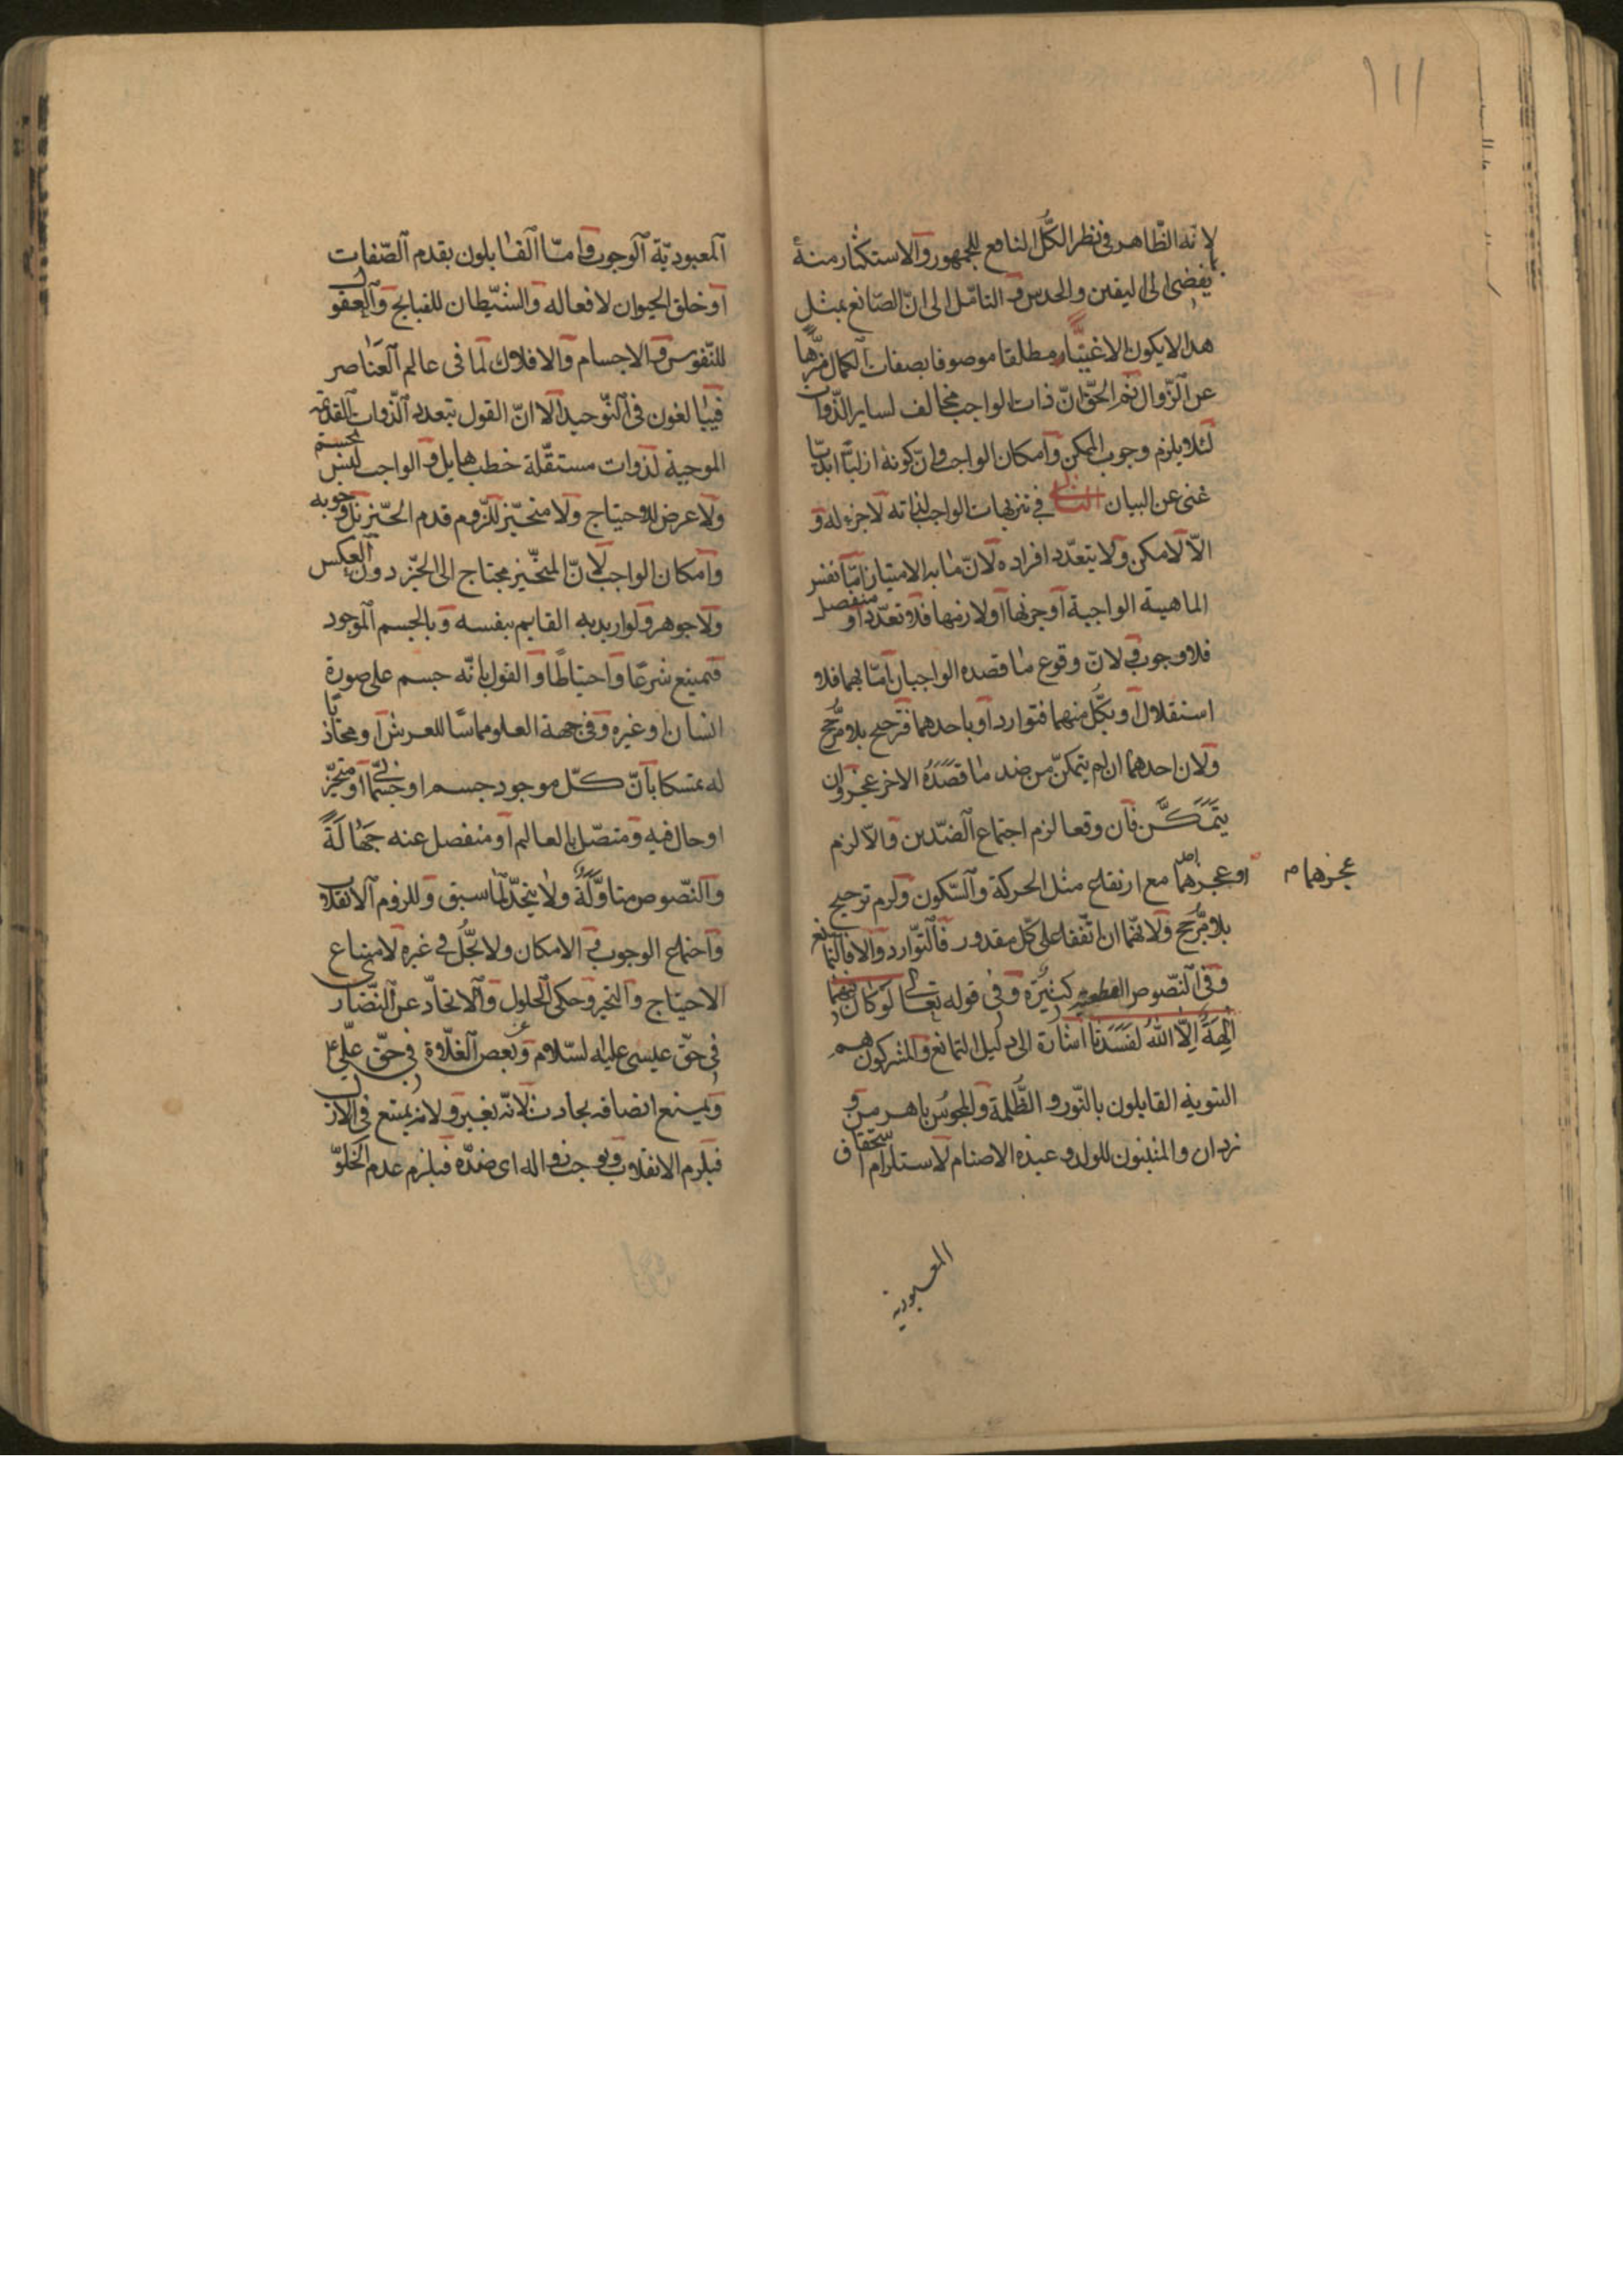 ١١١
لانه الظاهر فى نظر الكل النافع للجمهور والاستكثار منه
يفضى الى اليقين والحدس والتامّل الى انّ الصّانع بمثل
هذا لا يكون الا غنيّا مطلقا موصوفا بصفات الكمال منزّها
عن الزّوال ثم الحقّ انّ ذات الواجب مخالف لساير الذّوات
لئلا يلزم وجوب الممكن وامكان الواجب وانّ كونه ازليّا ابديّا
غنى عن البيان الثانى فى تنزيهات الواجب لذاته لا جزء له و
الّا لامكن ولا يتعدّد افراده لانّ ما به الامتياز امّا نفس
الماهية الواجبة او جزئها او لازمها فلا تعدّد او منفصل
فلا وجوب ولانّ وقوع ما قصده الواجبان امّا بهما فلا
استقلال او بكلّ منهما فتوارد او باحدهما فترجيح بلا مرجّح
ولان احدهما ان لم يتمكّن من ضد ما قصده الاخر عجز وان
يتمكّن فان وقعا لزم اجتماع الضدّين والّا لزم
او عجزهما مع ارتفاع مثل الحركة والسّكون ولزم ترجيح
عجزهما م
بلا مرجّح ولانّهما ان اتّفقا على كلّ مقدور فالتّوارد والا فالتمانع
وفى النّصوص القطعية كثيرة وفى قوله تعالى لو كان فيهما
الهة الّا الله لفسدتا اشارة الى دليل التمانع والمشركون هم
الثنوية القايلون بالنّور و الظّلمة والمجوس باهرمن و
يزدان والمثبتون للولد و عبدة الاصنام لاستلزام استحقاق
المعبودية
المعبوديّة الوجوب وامّا القايلون بقدم الصّفات
او خلق الحيوان لافعاله والشّيطان للقبايح والعقول
للنّفوس والاجسام والافلاك لما فى عالم العناصر
فيبالغون فى التّوحيد الا انّ القول بتعدد الذّوات القديمة
الموجبة لذوات مستقلّة خطب هايل و الواجب ليس بجسم
ولا عرض للاحتياج ولا متحيّز للزوم قدم الحيّز بل وجوبه
وامكان الواجب لانّ المتحيّز محتاج الى الحيّز دون العكس
ولا جوهر ولو اريد به القايم بنفسه وبالجسم الموجود
فيمتنع شرعا واحتياطا و القول بانّه جسم على صورة
انسان او غيره وفى جهة العلو مماسّا للعرش او محاذيا
له تمسكا بانّ كلّ موجود جسم او جسمانى او متحيّز
او حال فيه ومتصّل بالعالم او منفصل عنه جهالة
والنّصوص متاوّلة ولا يتحدّ لما سبق وللزوم الانقلاب
واجتماع الوجوب والامكان ولا يحلّ فى غيره لامتناع
الاحتياج والتحيز وحكى الحلول والاتحاد عن النّصارى
فى حقّ عيسى عليه لسّلام وبعض الغلاة فى حقّ علىّ
ويمتنع اتصافه بحادث لانّه تغير ولانه يمتنع فى الازل
فيلزم الانقلاب ويوجب زواله اى ضدّه فيلزم عدم الخلوّ